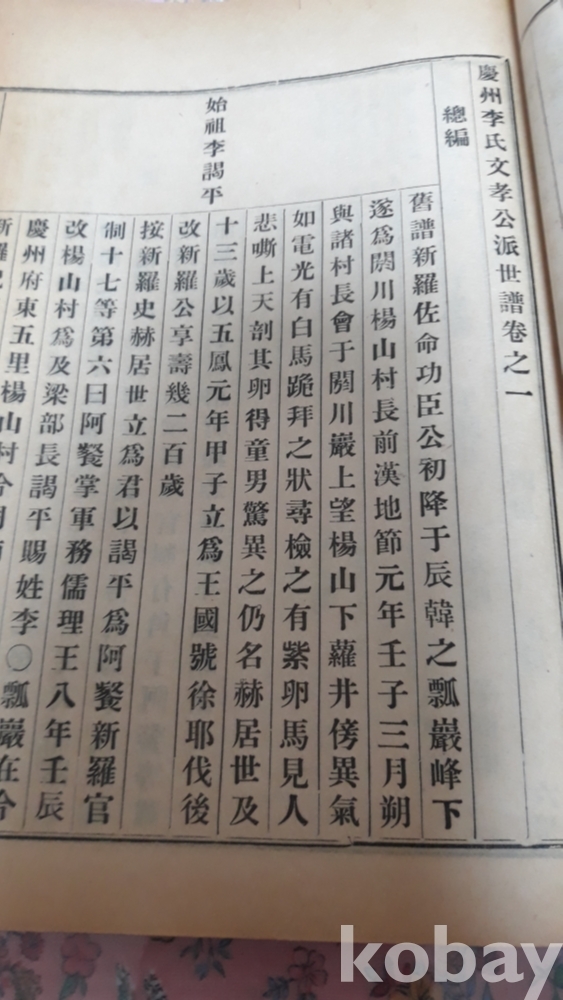 慶州李氏文孝公派世譜卷之一
總編
始祖李謁平
舊譜新羅佐命功臣公初降于辰韓之瓢巖峰下
遂爲閼川楊山村長前漢地節元年壬子三月朔
與諸村長會于閼川巖上望楊山下蘿井傍異氣
如電光有白馬跪拜之狀尋檢之有紫卵馬見人
悲嘶上天剖其卵得童男驚異之仍名赫居世及
十三歲以五鳳元年甲子立爲王國號徐耶伐後
改新羅公享壽幾二百歲
按新羅史赫居世立爲君以謁平爲阿飡新羅官
制十七等第六曰阿飡掌軍務儒理王八年壬辰
改楊山村爲及梁部長謁平賜姓李〇瓢巖在今
慶州府東五里楊山村今
新羅
kobay